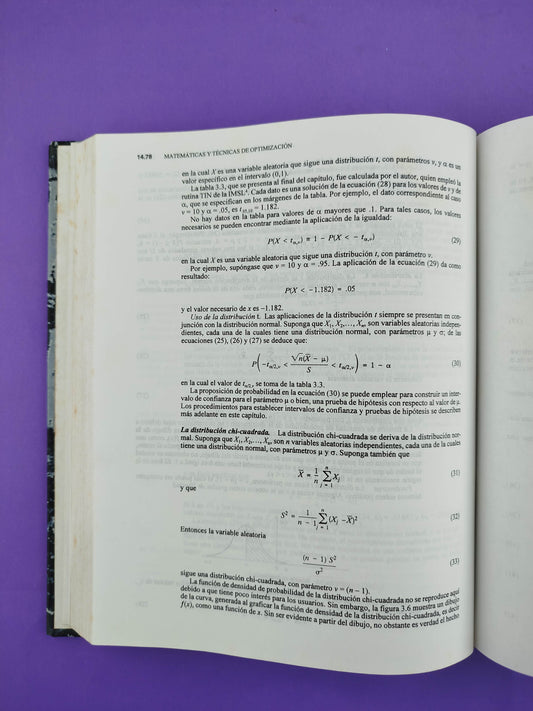 14.78 MATEMÁTICAS Y TÉCNICAS DE OPTIMIZACIÓN
en la cual X es una variable aleatoria que sigue una distribución t, con parámetros ν, y α es un
valor específico en el intervalo (0,1).
La tabla 3.3, que se presenta al final del capítulo, fue calculada por el autor, quien empleó la
rutina TIN de la IMSL⁴. Cada dato es una solución de la ecuación (28) para los valores de ν y de
α, que se especifican en los márgenes de la tabla. Por ejemplo, el dato correspondiente al caso
ν = 10 y α = .05, es t.05,10 = 1.182.
No hay datos en la tabla para valores de α mayores que .1. Para tales casos, los valores
necesarios se pueden encontrar mediante la aplicación de la igualdad:
P(X < tα,ν) = 1 − P(X < − tα,ν) (29)
en la cual X es una variable aleatoria que sigue una distribución t, con parámetro ν.
Por ejemplo, supóngase que ν = 10 y α = .95. La aplicación de la ecuación (29) da como
resultado:
P(X < −1.182) = .05
y el valor necesario de x es −1.182.
Uso de la distribución t. Las aplicaciones de la distribución t siempre se presentan en con-
junción con la distribución normal. Suponga que X₁, X₂,..., Xₙ, son variables aleatorias indepen-
dientes, cada una de las cuales tiene una distribución normal, con parámetros μ y σ; de las
ecuaciones (25), (26) y (27) se deduce que:
P(−tα/2,ν < √n(X̄ − μ) / S < tα/2,ν) = 1 − α (30)
en la cual el valor de tα/2,ν se toma de la tabla 3.3.
La proposición de probabilidad en la ecuación (30) se puede emplear para construir un inter-
valo de confianza para el parámetro μ o bien, una prueba de hipótesis con respecto al valor de μ.
Los procedimientos para establecer intervalos de confianza y pruebas de hipótesis se describen
más adelante en este capítulo.
La distribución chi-cuadrada. La distribución chi-cuadrada se deriva de la distribución nor-
mal. Suponga que X₁, X₂,..., Xₙ, son n variables aleatorias independientes, cada una de las cuales
tiene una distribución normal, con parámetros μ y σ. Suponga también que
X̄ = 1/n ∑ⁿj = 1 Xj (31)
y que
S² = 1/(n − 1) ∑ⁿj = 1 (Xj − X̄)² (32)
Entonces la variable aleatoria
(n − 1) S² / σ² (33)
sigue una distribución chi-cuadrada, con parámetro ν = (n − 1).
La función de densidad de probabilidad de la distribución chi-cuadrada no se reproduce aquí
debido a que tiene poco interés para los usuarios. Sin embargo, la figura 3.6 muestra un dibujo
de la curva, generada al graficar la función de densidad de la distribución chi-cuadrada, es decir
f(x), como una función de x. Sin ser evidente a partir del dibujo, no obstante es verdad el hecho